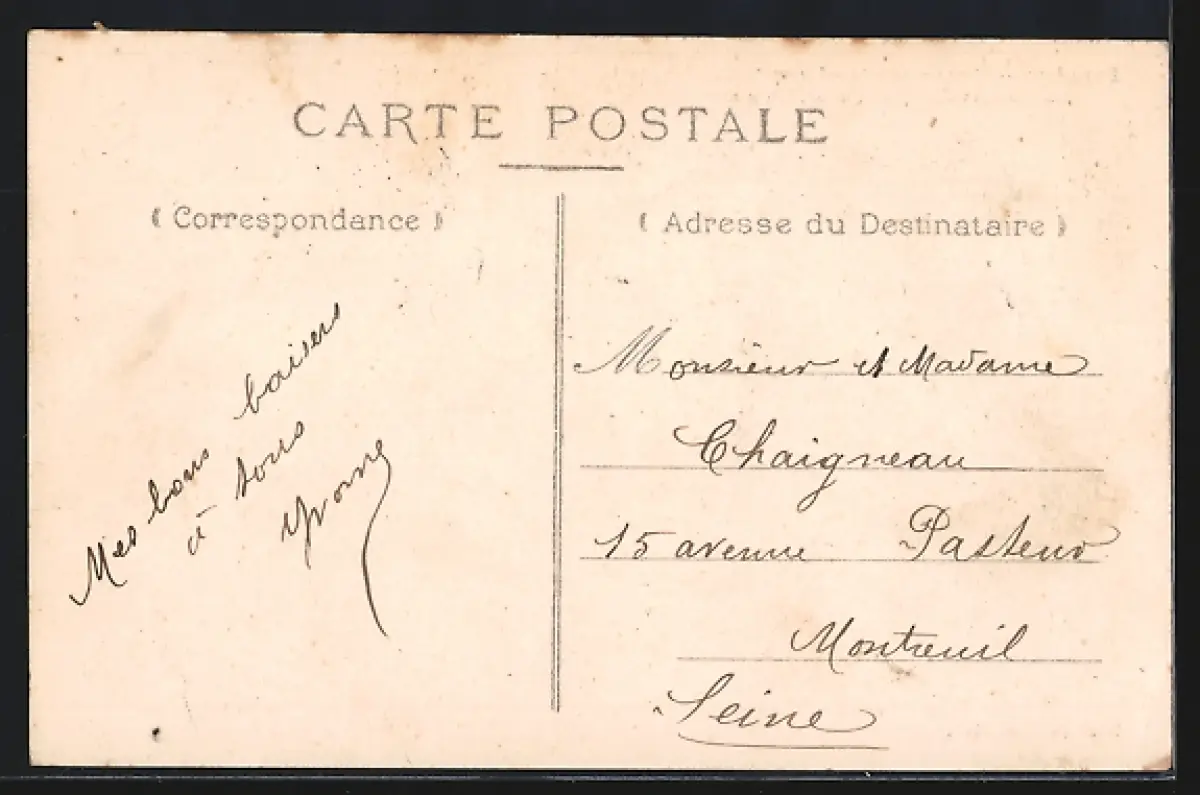 CARTE POSTALE
( Correspondance )
Mes bons baisers
à tous
Yvonne
( Adresse du Destinataire )
Monsieur et Madame
Chaigneau
15 avenue Pasteur
Montreuil
Seine